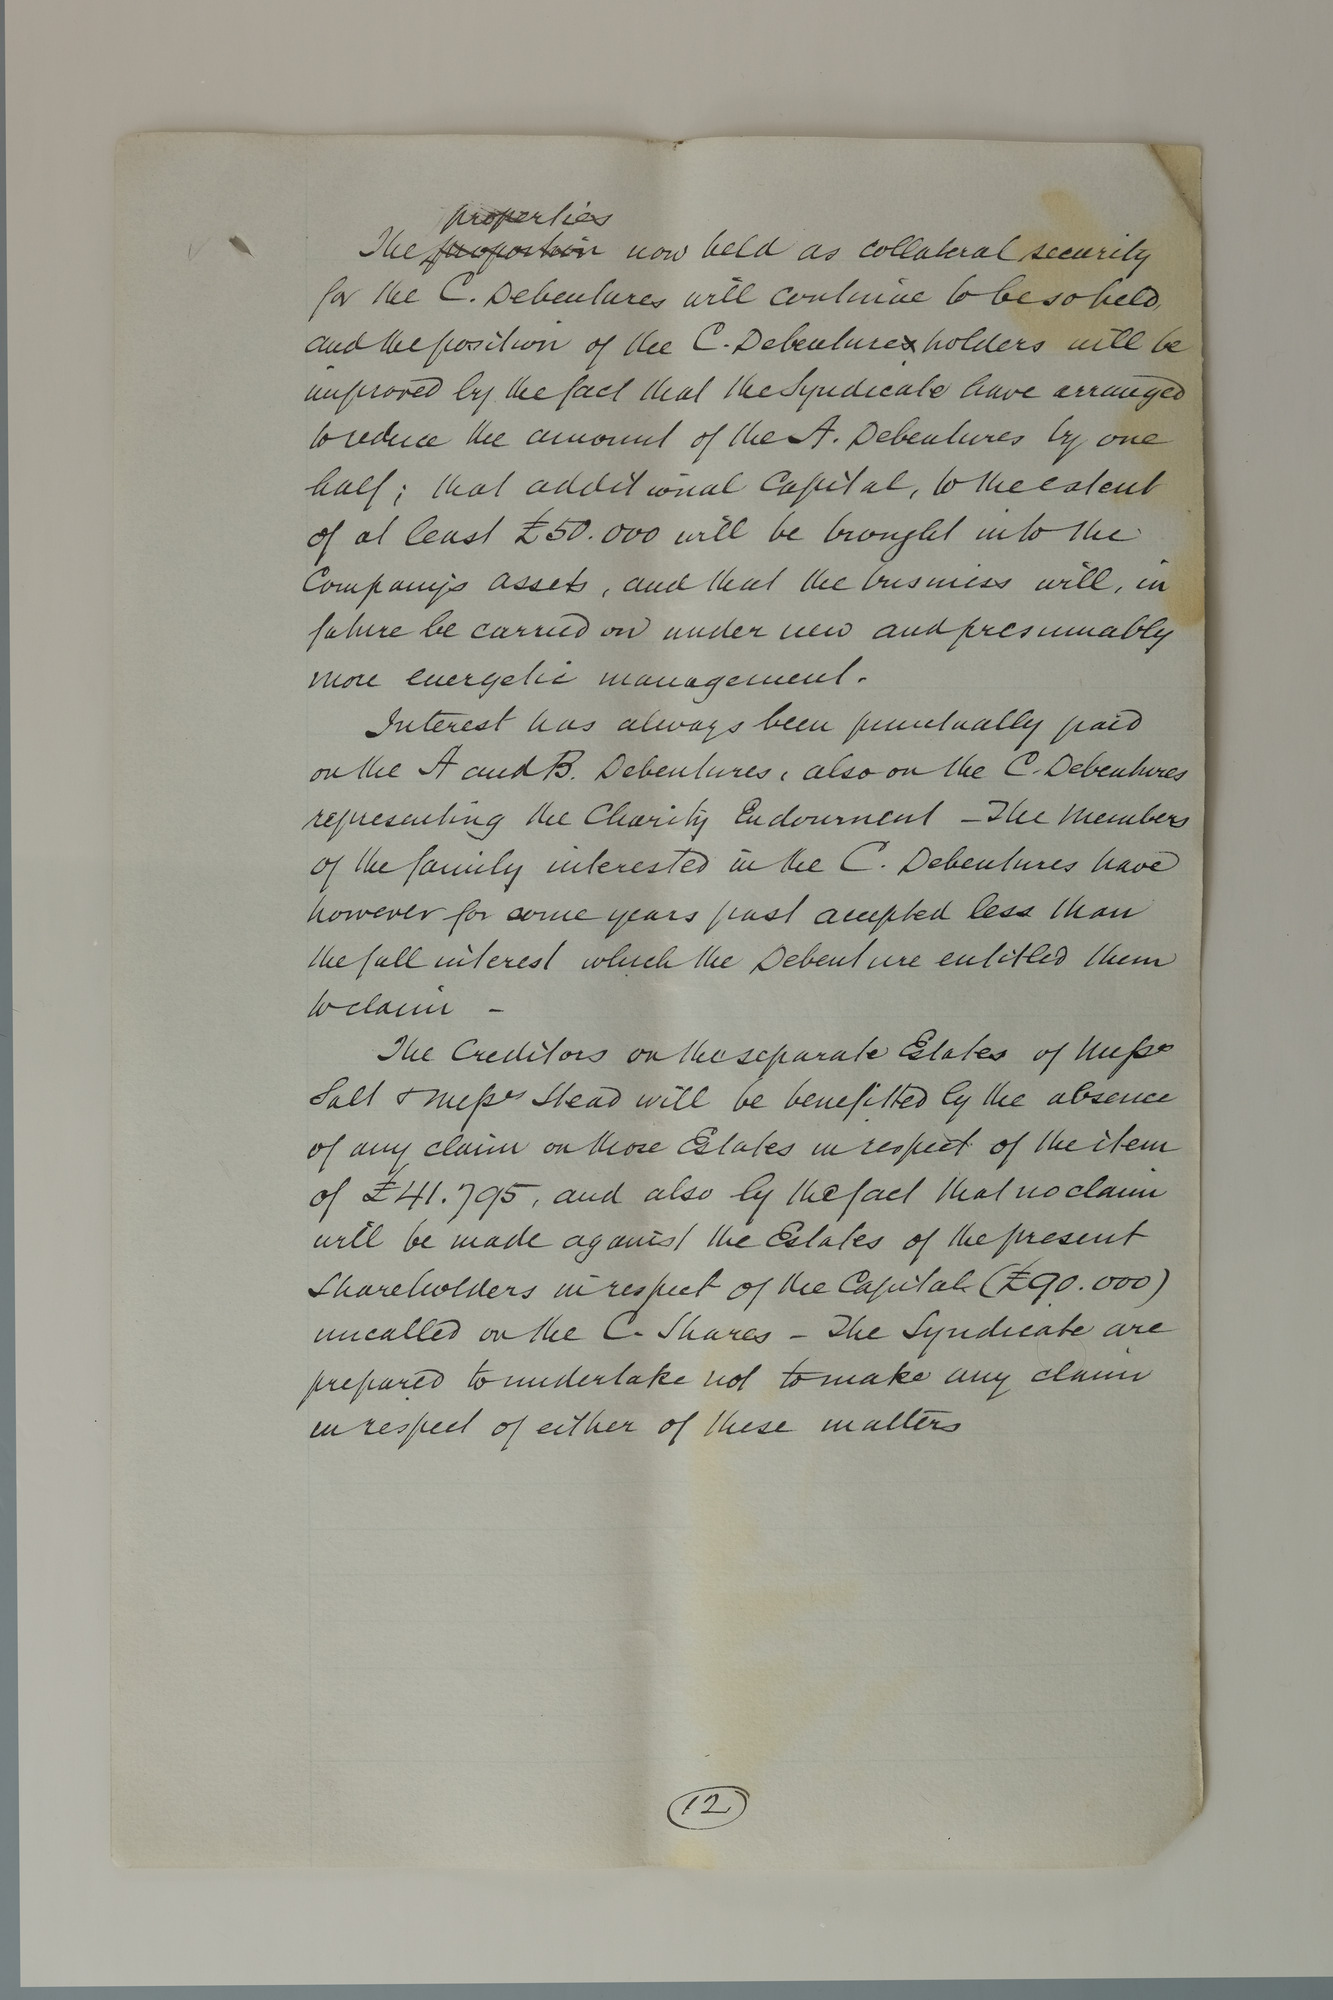 properties
The proportion now held as collateral security
for the C. Debentures will continue to be so held,
and the position of the C. Debenture holders will be
improved by the fact that the Syndicate have arranged
to reduce the amount of the A. Debentures by one
half; that additional Capital, to the extent
of at least £50.000 will be brought into the
Company's assets, and that the business will, in
future be carried on under new and presumably
more energetic management.
Interest has always been punctually paid
on the A and B. Debentures, also on the C. Debentures
representing the Charity Endowment – The Members
of the family interested in the C. Debentures have
however for some years past accepted less than
the full interest which the Debenture entitled them
to claim –
The Creditors on the separate Estates of Messrs
Salt & Messrs Stead will be benefitted by the absence
of any claim on those Estates in respect of the item
of £41.795, and also by the fact that no claim
will be made against the Estates of the present
Shareholders in respect of the Capital (£90.000)
uncalled on the C. Shares – The Syndicate are
prepared to undertake not to make any claim
in respect of either of these matters
12